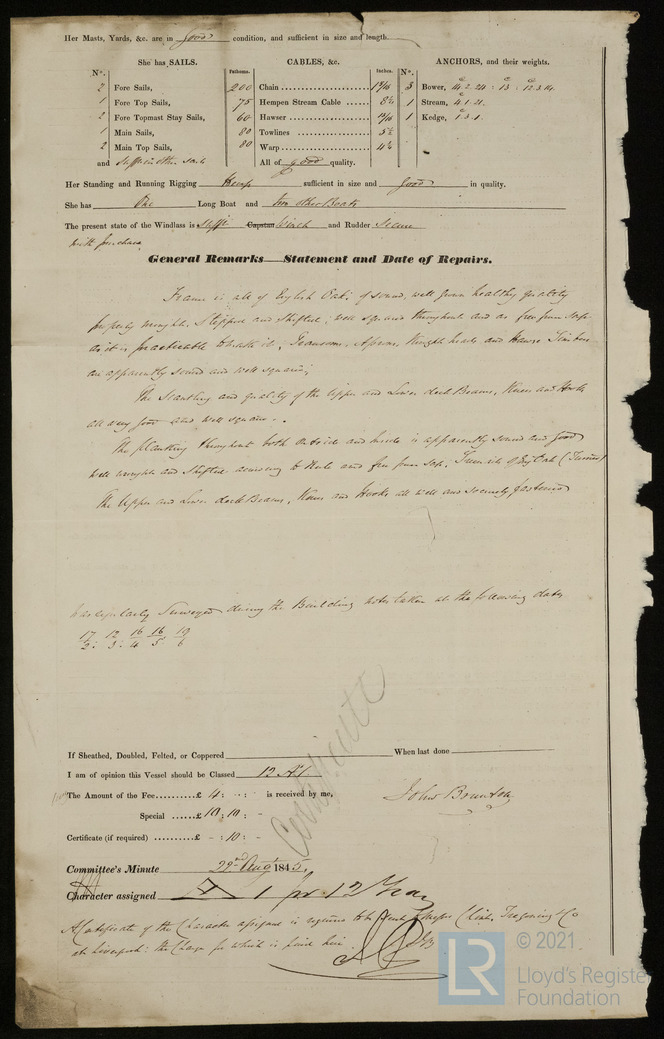 Her Masts, Yards, &c. are in good condition, and sufficient in size and length.
She has SAILS.
CABLES, &c.
ANCHORS, and their weights.
N°.
Fathoms.
Inches.
N°.
2 Fore Sails, 200 Chain 3 Bower,
1 Fore Top Sails, 75 Hempen Stream Cable 1 Stream, 4.1.21.
2 Fore Topmast Stay Sails, 60 Hawser 1 Kedge, 1.3.1.
1 Main Sails, 80 Towlines
2 Main Top Sails, 80 Warp
and All of good quality.
Her Standing and Running Rigging Hemp sufficient in size and good in quality.
She has One Long Boat and two other Boats
The present state of the Windlass is Capstan Winch and Rudder
with purchase
General Remarks—Statement and Date of Repairs.
Frame is all of English Oak, of sound, well grown healthy quality
properly wrought. Stepped and Shifted; well squared throughout and as free from sap
as it is practicable to have it; Transoms, Aprons, Knight heads and Hawse Timbers
are apparently sound and well squared;
The Scantling and quality of the Upper and Lower deck Beams, Knees and Hooks
all very good and well square.
The planking throughout both outside and inside is apparently sound and good
well wrought and Shifted according to Rule and free from Sap. Treenails of Eng Oak (Turned)
The Upper and Lower deck Beams, Knees and Hooks all well and securely fastened
regularly Surveyed during the Building notes taken at the following dates
17/2: 12/3: 16/4 16/5 19/6
Certificate
If Sheathed, Doubled, Felted, or Coppered When last done
I am of opinion this Vessel should be Classed 12 A1
The Amount of the Fee £ 4: - : - is received by me,
John Brunton
Special £ 10: 10: -
Certificate (if required) £ - : 10: -
Committee's Minute 22nd Aug 1845.
Character assigned A 1 for 12 Years
A Certificate of the Character assigned is required to be sent to Messrs Clint, Tregoning & Co
at Liverpool: the Charge for which is paid here.
LR
© 2021.
Lloyd's Register
Foundation